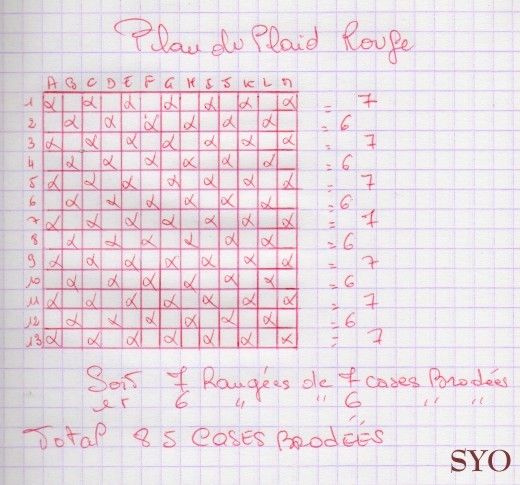 Plan du Plaid Rouge
A B C D E F G H I J K L M
1 α α α α α α α = 7
2 α α α α α α = 6
3 α α α α α α α = 7
4 α α α α α α = 6
5 α α α α α α α = 7
6 α α α α α α = 6
7 α α α α α α α = 7
8 α α α α α α = 6
9 α α α α α α α = 7
10 α α α α α α = 6
11 α α α α α α α = 7
12 α α α α α α = 6
13 α α α α α α α = 7
Soit 7 Rangées de 7 cases Brodées
et 6 " " 6 " "
Total 85 CASES BRODÉES
SYO